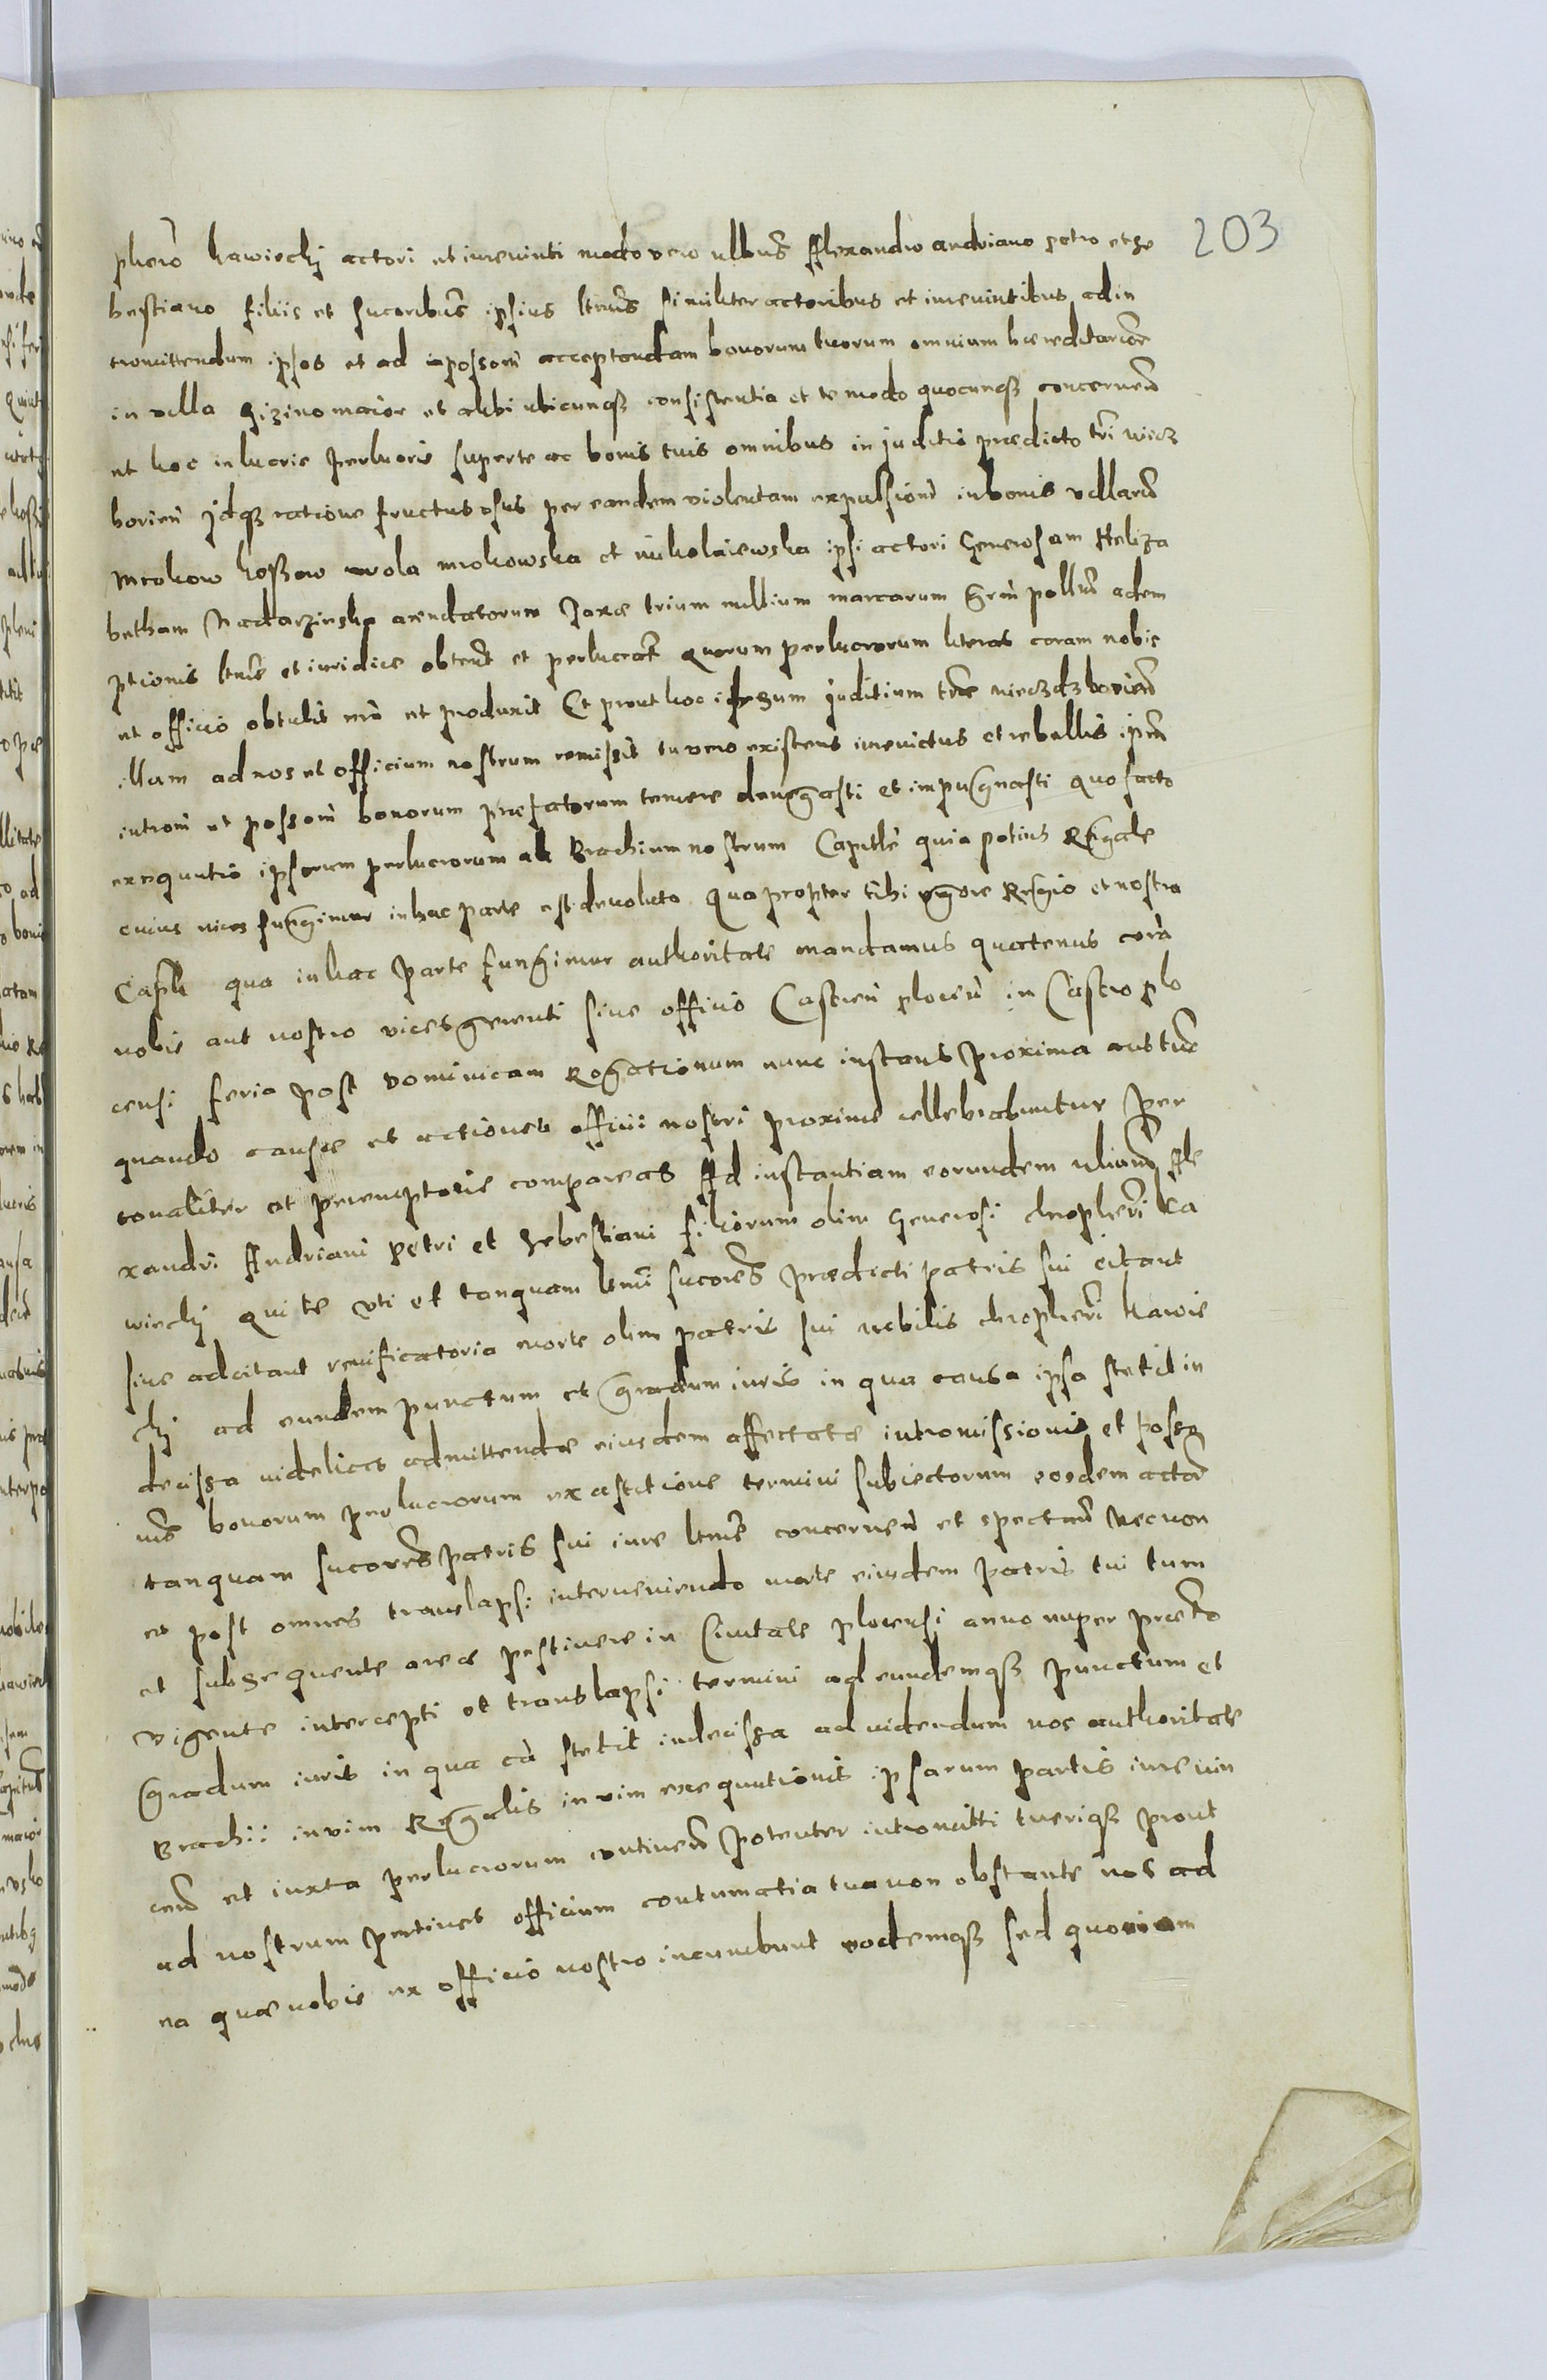 203
phero kawiechj actori et iurevinti modo vero nllbus Alexandro andriano petro et se
bestiano filiis et sucoribus ipsius ltmis similiter actoribus et iurevintibus ad in
tromittendum ipsos et ad possom acceptandam bonorum tuorum omnium haereditarior
in villa Gizino maior et alibi ubicunqз consistentia et te modo quocunqз concernen
et hoc in lucris perlucris super te ac bonis tuis omnibus in juditio praedicto tri
idqз ratione fructus osus per eandem violentam expulsionem in bonis villarum
Mrokow koszow wola mrokowska et mikolaiewska ipsi actori Generosam Heliza
betham Nadarzinska arendatorum Jaxae trium millium marcarum grm pollium adem
ptionis ltmis et iuridice obtent et perlucrat quorum perlucrorum literas coram nobis
et officio obtulit et produxit Et prout hoc ipsum juditium trae
illam ad nos et officium nostrum remissit tu vero existens iurevictus et rebellis ipam
introm et possom bonorum praefatorum temere denegasti et impugnasti quo facto
exequutio ipsorum perlucrorum ad Brachium nostrum Capitle quia potius Regale
cuius vices fungimur in hac parte est devoluta qua propter tibi vigore Regio et nostra
Caplli qua in hac parte fungimur authoritate mandamus quatenus cora
nobis aut nostro vicesgerenti sive officio Castren plocen in Castro plo
censi feria post dominicam Rogationum nunc instans proxima aut tunc
quando causae et actiones officii nostri proxime cellebrabuntur per
sonaliter et peremptorie compareas Ad instantiam eorundem Ale
xandri Andriani petri et Sebestiani filiorum olim Generosi chropheri Ka
wiechj qui te uti et tanquam ltmi sucores praedicti patris sui citant
sive adcitant revificatoria morte olim patris sui nobilis chropheri kawie
chj ad eundem punctum et gradum iuris in qua causa ipsa stetit in
decissa videlicet admittendae eiusdem affectatae intromissionis et posse
nis bonorum perlucrorum ex astitione termini subiectorum eosdem actor
tanquam sucores patris sui iure ltmis concernen et spectan Nec non
et post omnes translapsi interveniendo morte eiusdem patris tui tum
et subsequente area pestinere in Civitate plocensi anno nuper praeto
vigente intercepti et translapsi termini ad eundemqз punctum et
gradum iuris in qua ca stetit indecissa ad videndum nos authoritate
Brachii in vim Regalis in vim exequutionis ipsarum partis iurevin
cen et iuxta perlucrorum continen potenter intromitti tueriqз prout
ad nostrum pertinet officium contumatia tua non obstante nos ad
ea quae nobis ex officio nostro incumbunt eodemqз sed quoniam